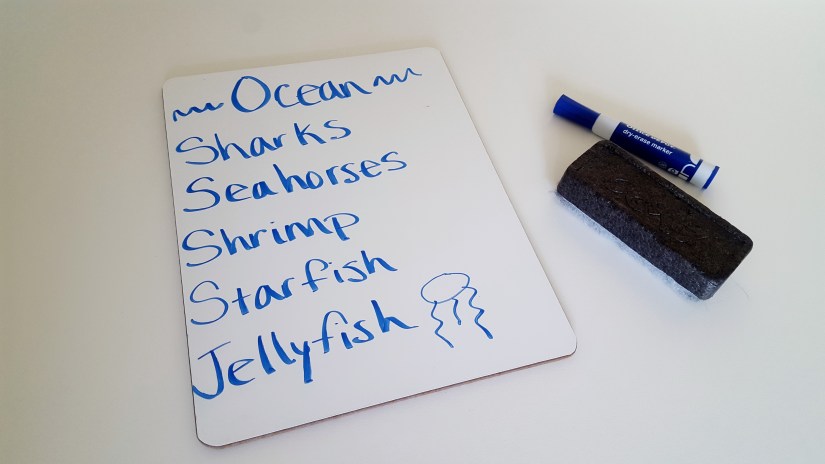 Ocean
Sharks
Seahorses
Shrimp
Starfish
Jellyfish
dry-erase marker